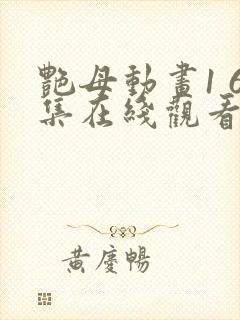 艷母動畫16
集在綫觀看
黃慶暢